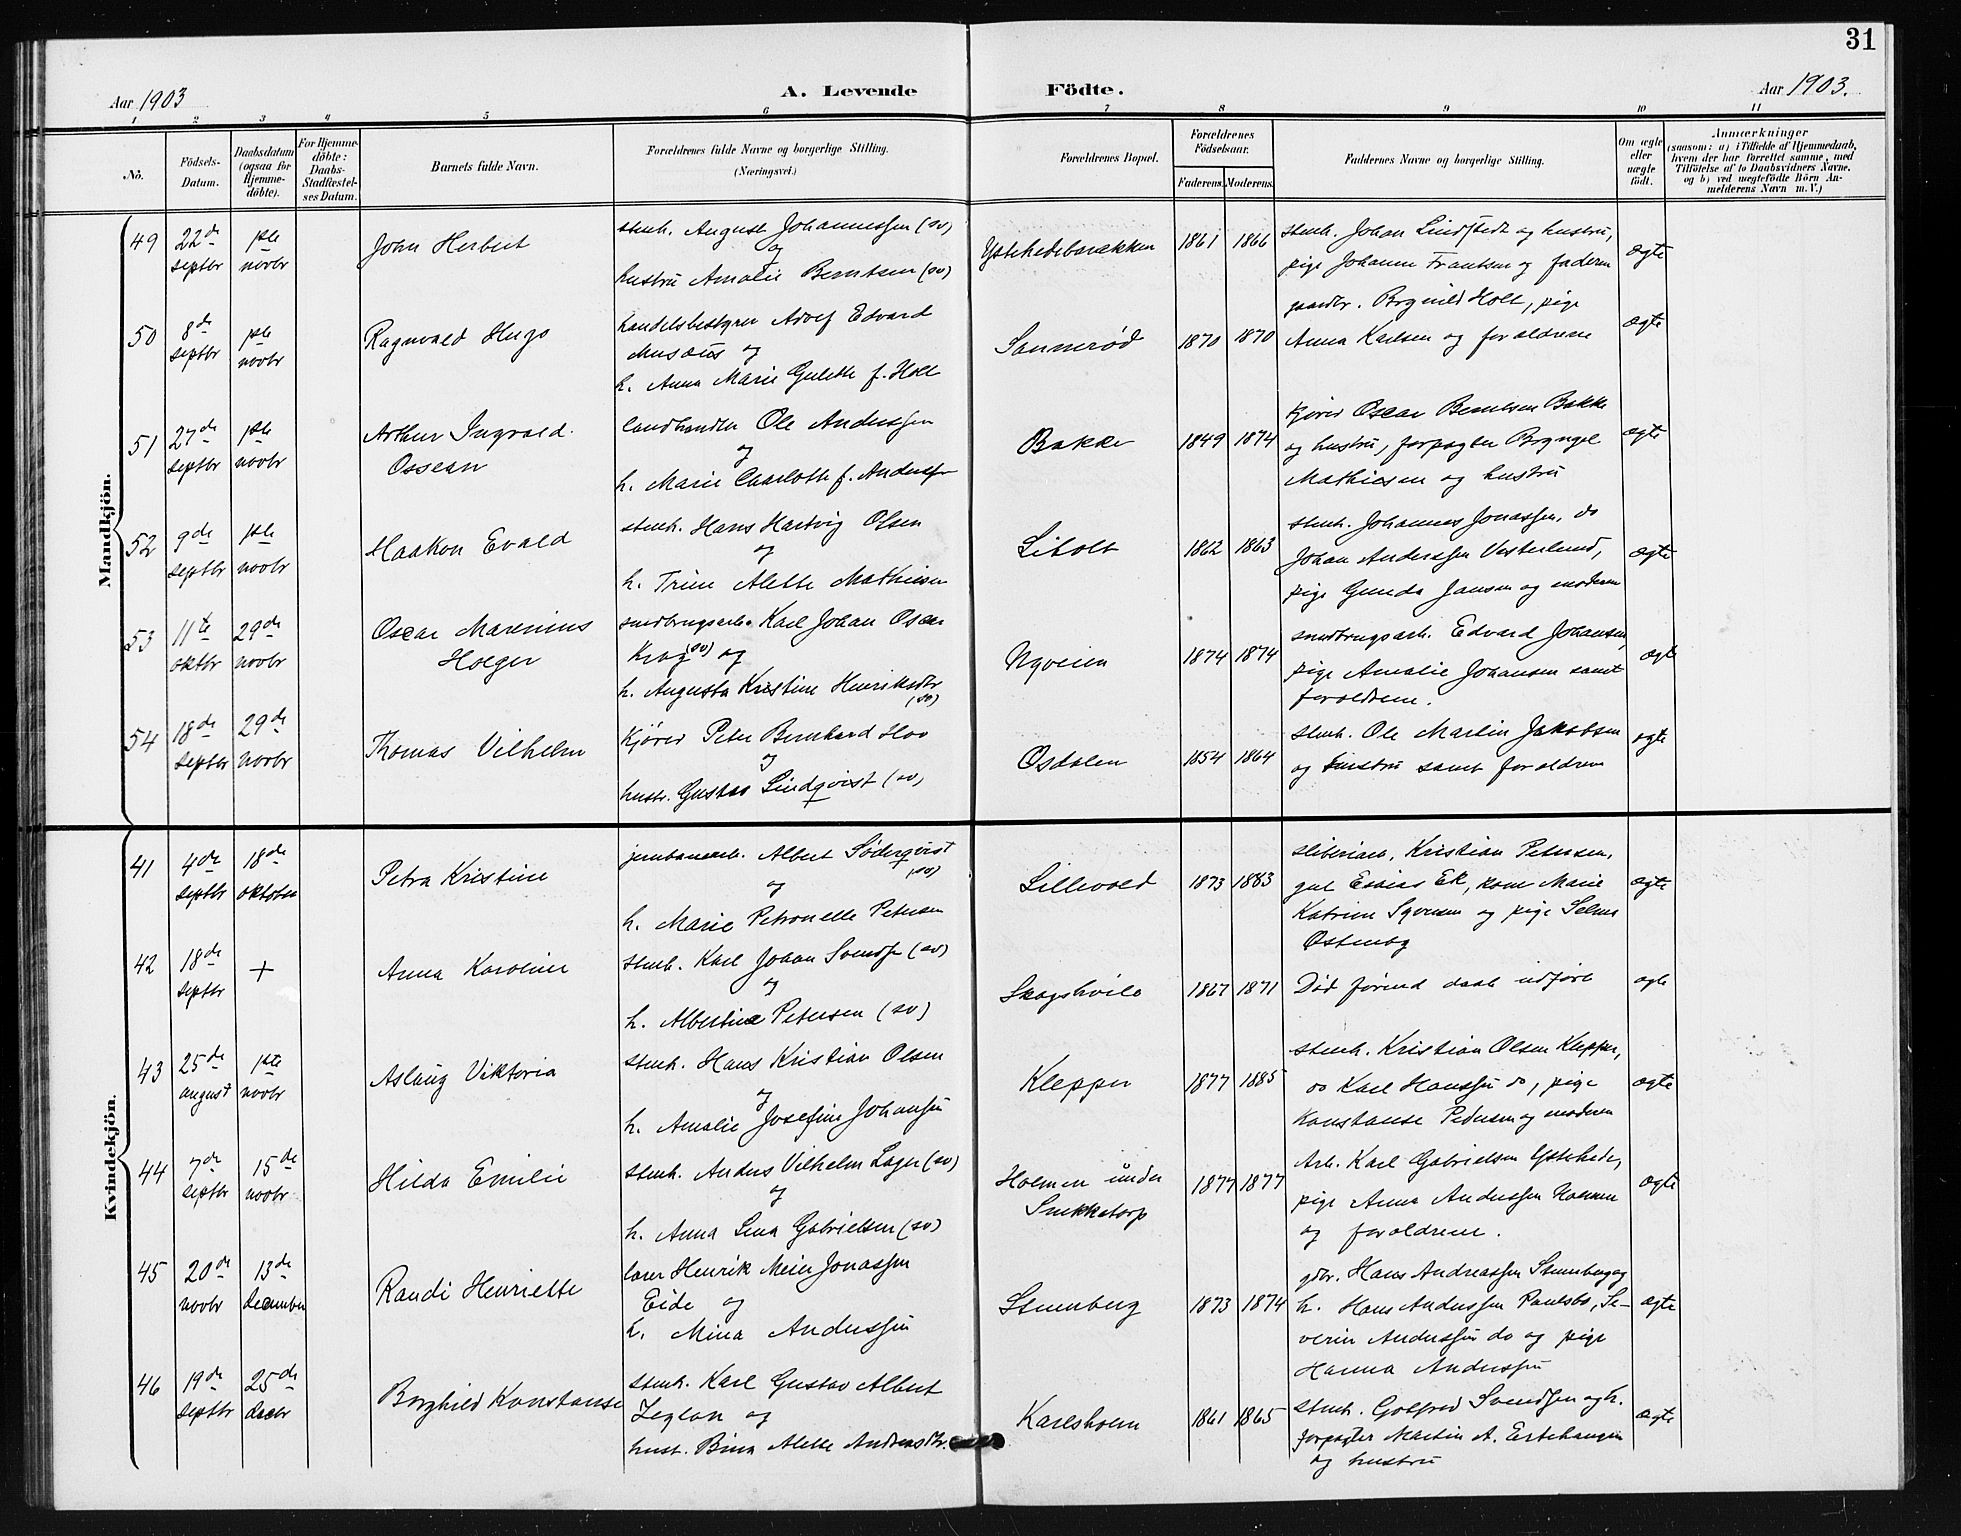 31
Aar 1903
A. Levende Födte.
Aar 1903.
1 2 3 4 5 6 7 8 9 10 11
No.
Födsels-Datum.
Daabsdatum (ogsaa for Hjemme-döbte).
For Hjemme-döbte: Daabs-Stadfæstel-ses Datum.
Barnets fulde Navn.
Forældrenes fulde Navne og borgerlige Stilling. (Næringsvei.)
Forældrenes Bopæl.
Forældrenes Födselsaar.
Faderens. Moderens.
Faddernes Navne og borgerlige Stilling.
Om ægte eller uægte födt.
Anmærkninger
(saasom: a) i Tilfælde af Hjemmedaab, hvem der har forrettet samme, med Tilföielse af to Daabsvidners Navne, og b) ved uægtefödte Börn An-melderens Navn m. V.)
Mandkjön.
49 22de septbr 1ste novbr John Herbert
stenh. August Johannessen (sv)
og
hustru Amalie Berntsen (sv)
Ystehedebrækken 1861 1866
stenh. Johan Lindstedt og hustru,
pige Johanne Frantsen og faderen
ægte
50 8de septbr 1ste novbr Ragnvald Hugo
handelsbestyrer Adolf Edvard
Musæus og
h. Anna Marie Gulette f. Holt
Sannerød 1870 1870
gaardbr. Brynild Holt, pige
Anna Karlsen og forældrene
ægte
51 27de septbr 1ste novbr Arthur Ingvald
Ossean
landhandler Ole Anderssen
og
h. Marie Charlotte f. Anderssen
Bakke 1849 1874
kjører Oscar Berntsen Bakke
og hustru, forpagter Bryngel
Mathiesen og hustru
ægte
52 9de septbr 1ste novbr Haakon Evald
stenh. Hans Hartvig Olsen
og
h. Trine Alette Mathiesen
Liholt 1862 1863
stenh. Johannes Jonassen, do
Johan Anderssen Vesterlund,
pige Gunda Jansen og moderen
ægte
53 11te oktbr 29de novbr Oscar Marenius
Holger
Karl Johan Oscar
Krog (sv) og
h. Augusta Kristine Henriksdtr
(sv)
Nyveien 1874 1874
Edvard Johansen,
pige Amalie Johansen samt
forældrene.
ægte
54 18de septbr 29de novbr Thomas Vilhelm
kjører Peter Bernhard Hov
og
hustr. Gustava Lindqvist (sv)
Osdalen 1854 1864
stenh. Ole Martin Jakobsen
og hustru samt forældrene
ægte
Kvindekjön.
41 4de septbr 18de oktober Petra Kristine
jernbanearb. Albert Söderqvist
(sv)
og
h. Marie Petronelle Petersen
Lillevold 1873 1883
sliberiarb. Kristian Petersen,
gut Esaias Ek, kone Marie
Katrine Syversen og pige Selma
Ostenög
ægte
42 18de septbr + Anna Karoline
stenh. Karl Johan Svendsen (sv)
og
h. Albertine Petersen (sv)
Skogshvile 1867 1871
Död förend daab udfört
ægte
43 25de august 1ste novbr Aslaug Viktoria
stenh. Hans Kristian Olsen
og
h. Amalie Josefine Johansen
Klepper 1877 1885
stenh. Kristian Olsen Klepper,
do Karl Hanssen do, pige
Konstanse Pedersen og moderen
ægte
44 7de septbr 15de novbr Hilda Emilie
stenh. Anders Vilhelm Lager (sv)
og
h. Anna Lena Gabrielsen (sv)
Holmen under
Snekketorp
1877 1877
Arb. Karl Gabrielsen Ystehede,
pige Anna Anderssen Holmen
og forældrene.
ægte
45 20de novbr 13de december Randi Henriette
lærer Henrik Meier Jonassen
Eide og
h. Mina Anderssen
Stenberg 1873 1874
gdbr. Hans Andreassen Stenberg og
h. Hans Anderssen Paulsbo, Se-
verin Anderssen do og pige
Hanna Anderssen
ægte
46 19de septbr 25de decbr Borghild Konstanse
stenh. Karl Gustav Albert
Zeglon og
hust. Bina Alette Andreasdtr.
Karlsholm 1861 1865
stenh. Gotfred Svendsen og h.
forpagter Martin A. Ertehaugen
og hustru
ægte